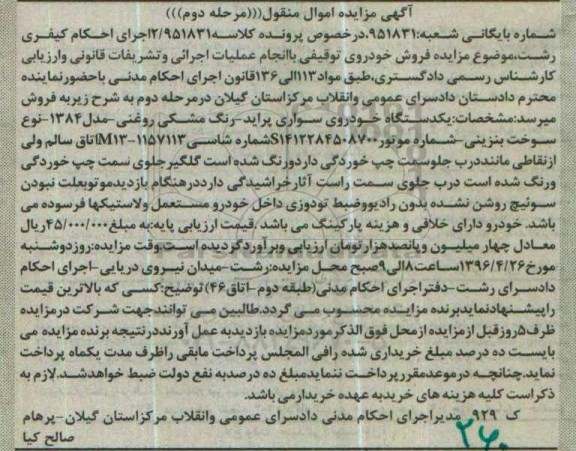 آگهی مزایده اموال منقول(((مرحله دوم)))
شماره بایگانی شعبه:۹۵۱۸۳۱.درخصوص پرونده کلاسه۲/۹۵۱۸۳۱اجرای احکام کیفری
رشت،موضوع مزایده فروش خودروی توقیفی باانجام عملیات اجرائی وتشریفات قانونی وارزیابی
کارشناس رسمی دادگستری،طبق مواد۱۱۳الی۱۳۶قانون اجرای احکام مدنی باحضورنماینده
محترم دادستان دادسرای عمومی وانقلاب مرکزاستان گیلان درمرحله دوم به شرح زیربه فروش
میرسد:مشخصات:یکدستگاه خودروی سواری پراید-رنگ مشکی روغنی-مدل۱۳۸۴-نوع
سوخت بنزینی-شماره موتور S۱۴۱۲۲۸۴۵۰۸۷۰۰شماره شاسی M۱۳-۱۱۵۷۱۱۳اتاق سالم ولی
ازنقاطی ماننددرب جلوسمت چپ خوردگی داردورنگ شده است گلگیرجلوی سمت چپ خوردگی
ورنگ شده است درب جلوی سمت راست آثارخراشیدگی دارددرهنگام بازدیدموتوبعلت نبودن
سوئیچ روشن نشده بدون رادیووضبط تودوزی داخل خودرو مستعمل ولاستیکها فرسوده می
باشد. خودرو دارای خلافی و هزینه پارکینگ می باشد .قیمت ارزیابی پایه:به مبلغ۴۵/۰۰۰/۰۰۰ریال
معادل چهار میلیون وپانصدهزارتومان ارزیابی وبرآوردگردیده است.وقت مزایده:روزدوشنبه
مورخ۱۳۹۶/۴/۲۶ساعت۸الی۹صبح محل مزایده:رشت-میدان نیروی دریایی-اجرای احکام
دادسرای رشت-دفتراجرای احکام مدنی(طبقه دوم-اتاق۴۶)توضیح:کسی که بالاترین قیمت
راپیشنهادنمایدبرنده مزایده محسوب می گردد.طالبین می توانندجهت شرکت درمزایده
ظرف۵روزقبل ازمزایده ازمحل فوق الذکرموردمزایده بازدیدبه عمل آورنددرنتیجه برنده مزایده می
بایست ده درصد مبلغ خریداری شده رافی المجلس پرداخت مابقی راظرف مدت یکماه پرداخت
نماید.چنانچه درموعدمقررپرداخت ننمایدمبلغ ده درصدبه نفع دولت ضبط خواهدشد.لازم به
ذکراست کلیه هزینه های خریدبه عهده خریدارمی باشد.
ک ۹۲۹ مدیراجرای احکام مدنی دادسرای عمومی وانقلاب مرکزاستان گیلان-پرهام
صالح کیا
۲۶۰